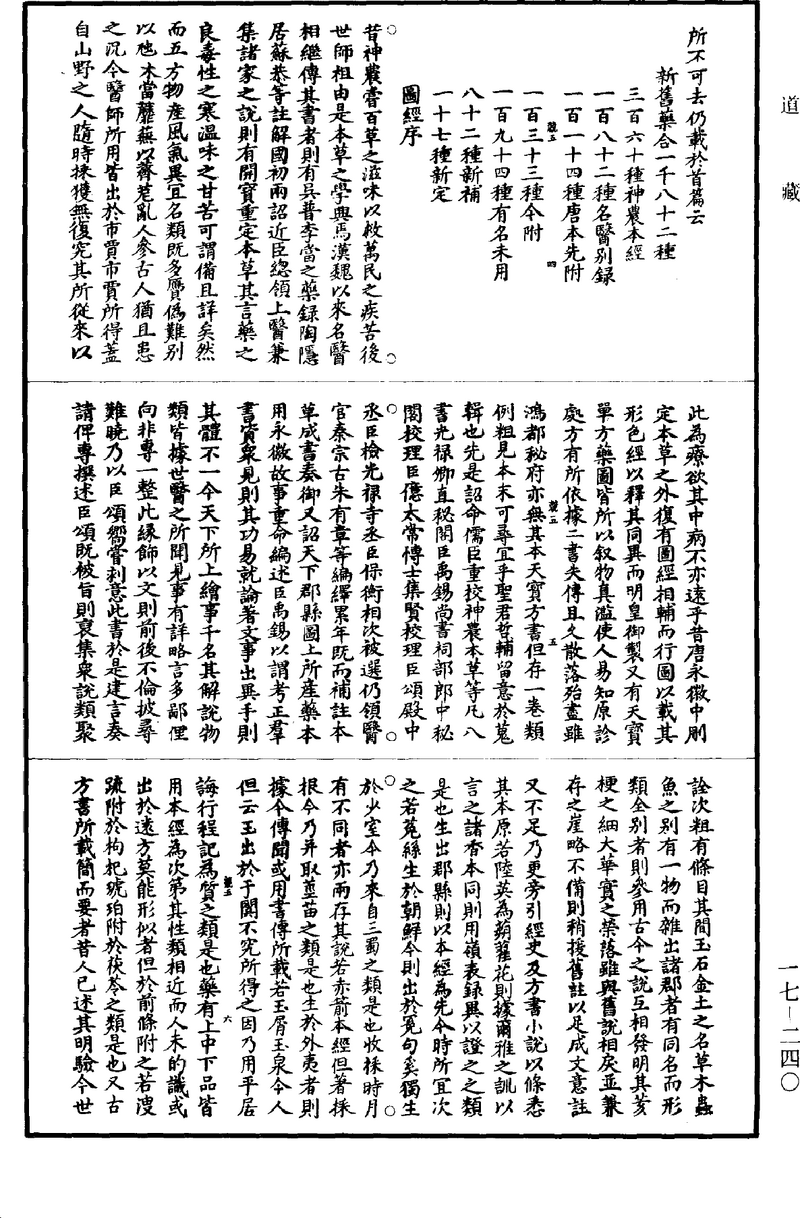 道藏
所不可去仍載於首篇云
新舊藥合一千八十二種
三百六十種神農本經
一百八十二種名醫別錄
一百一十四種唐本先附
四
一百三十三種今附
一百九十四種有名未用
八十二種新補
一十七種新定
圖經序
昔神農嘗百草之滋味以救萬民之疾苦後
世師祖由是本草之學興焉漢魏以來名醫
相繼傳其書者則有吳普李當之藥錄陶隱
居蘇恭等註解國初兩詔近臣總領上醫兼
集諸家之說則有開寶重定本草其言藥之
良毒性之寒溫味之甘苦可謂備且詳矣然
而五方物產風氣異宜名類既多贗偽難別
以虺床當蘼蕪以薺苨亂人參古人猶且患
之況今醫師所用皆出於市賈市賈所得蓋
自山野之人隨時採獲無復究其所從來以
此為療欲其中病不亦遠乎昔唐永徽中刪
定本草之外復有圖經相輔而行圖以載其
形色經以釋其同異而明皇御製又有天寶
單方藥圖皆所以敘物真濫使人易知原診
處方有所依據二書失傳且久散落殆盡雖
五
鴻都秘府亦無其本天寶方書但存一卷類
例粗見本末可尋宜乎聖君哲輔留意於蒐
輯也先是詔命儒臣重挍神農本草等凡八
書光祿卿直秘閣臣禹錫尚書祠部郎中秘
閣校理臣億太常博士集賢校理臣頌殿中
丞臣檢光祿寺丞臣保衡相次被選仍領醫
官秦宗古朱有章等編繹累年既而補註本
草成書奏御又詔天下郡縣圖上所產藥本
用永徽故事重命編述臣禹錫以謂考正羣
書資眾見則其功易就論著文事出異手則
其體不一今天下所上繪事千名其解說物
類皆據世醫之所聞見事有詳略言多鄙俚
向非專一整此緣飾以文則前後不倫披尋
難曉乃以臣頌嚮嘗刻意此書於是建言奏
請俾專撰述臣頌既被旨則裒集眾說類聚
詮次粗有條目其間玉石金土之名草木蟲
魚之別有一物而雜出諸郡者有同名而形
類全別者則參用古今之說互相發明其荄
梗之細大華實之榮落雖與舊說相戾並兼
存之崖略不備則稍援舊註以足成文意註
又不足乃更旁引經史及方書小說以條悉
其本原若陸英為蒴藋花則據爾雅之訓以
言之諸香本同則用嶺表錄異以證之之類
是也生出郡縣則以本經為先今時所宜次
之若菟絲生於朝鮮今則出於冤句奚獨生
於少室今乃來自三蜀之類是也收採時月
有不同者亦兩存其說若赤箭本經但著採
根今乃并取莖苗之類是也生於外夷者則
據今傳聞或用書傳所載若玉屑玉泉今人
但云玉出於于闐不究所得之因乃用平居
六
誨行程記為質之類是也藥有上中下品皆
用本經為次第其性類相近而人未的識或
出於遠方莫能形似者但於前條附之若溲
疏附於枸杞琥珀附於茯苓之類是也又古
方書所載簡而要者昔人已述其明驗今世
一七－二四〇